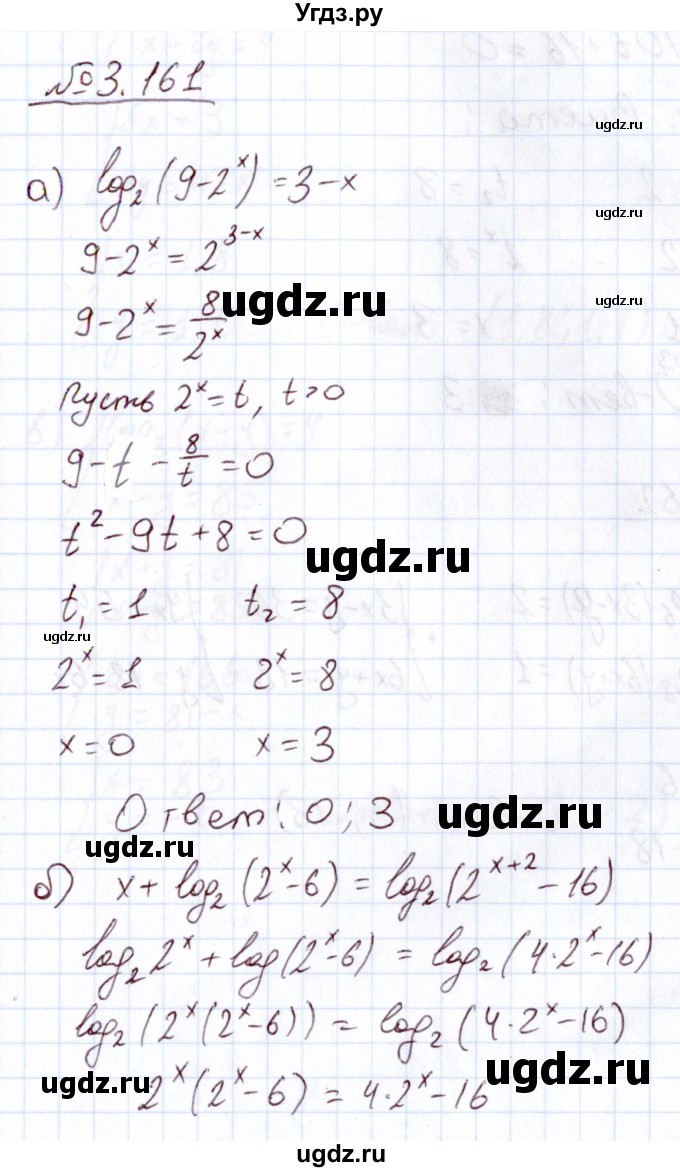 Угдз.ру
№3.161
ugdz.ru
а) log₂(9-2ˣ)=3-x
ugdz.ru
9-2ˣ=2³⁻ˣ
ugdz.ru
ugdz.ru
9-2ˣ=8/2ˣ
Пусть 2ˣ=t, t>0
9-t-8/t=0
t²-9t+8=0
ugdz.ru
t₁=1 t₂=8
ugdz.ru
2ˣ=1 2ˣ=8
x=0 x=3
Ответ: 0; 3
ugdz.ru
ugdz.ru
б) x+log₂(2ˣ-6)=log₂(2ˣ⁺²-16)
log₂2ˣ+log(2ˣ-6)=log₂(4·2ˣ-16)
log₂(2ˣ(2ˣ-6))=log₂(4·2ˣ-16)
ugdz.ru
ugdz.ru
2ˣ(2ˣ-6)=4·2ˣ-16
ugdz.ru